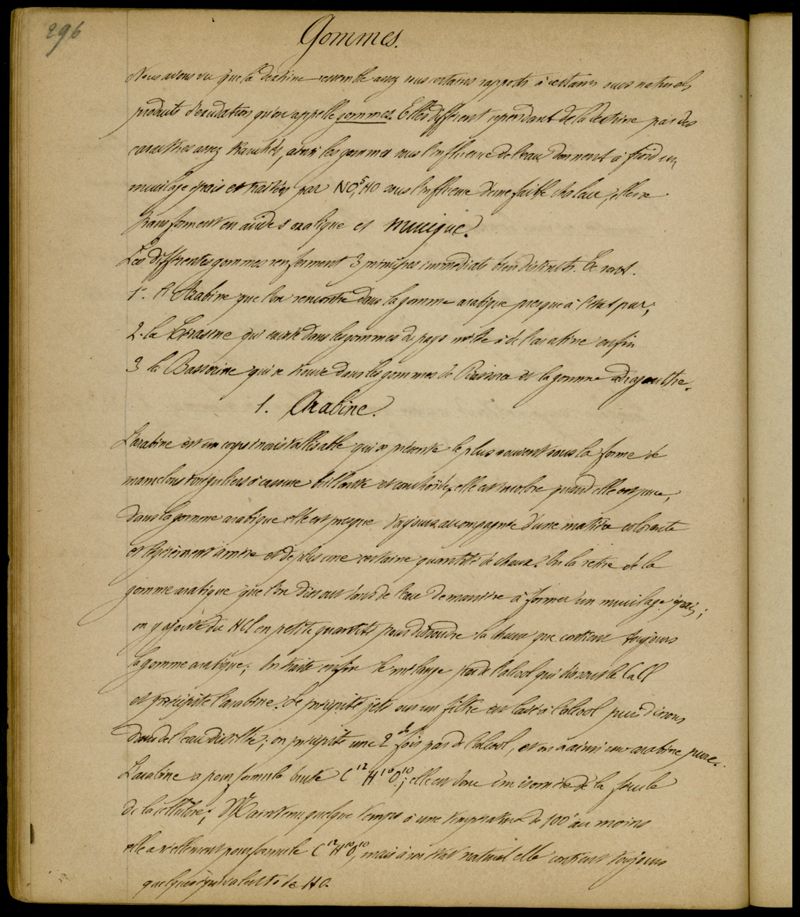 296
Gommes.
Nous avons vu que la dextrine ressemble assez sous certains rapports à certains sucs naturels
produits d'exudation qu'on appelle gommes. Elles diffèrent cependant de la dextrine par des
caractères assez tranchés, ainsi les gommes sous l'influence de l'eau donnent à froid un
mucilage épais et traitées par NO⁵,HO sous l'influence d'une faible chaleur, elles se
transforment en acide oxalique et mucique.
Les différentes gommes renferment 3 principes immédiats bien distincts. Ce sont.
1º. l'Arabine que l'on rencontre dans la gomme arabique presque à l'état pur;
2. la Cérasine qui existe dans les gommes du pays mêlée à de l'arabine enfin
3 la Bassorine qui se trouve dans les gommes de Bassora et la gomme adragante.
1. Arabine.
L'arabine est un corps incristallisable qui se présente le plus souvent sous la forme de
mamelons irréguliers à cassure brillante et conchoïde, elle est incolore quand elle est pure,
dans la gomme arabique elle est presque toujours accompagnée d'une matière colorante
et légèrement amère et de plus une certaine quantité de chaux. On la retire de la
gomme arabique que l'on dissout dans de l'eau de manière à former un mucilage épais;
on y ajoute du HCl en petite quantité pour dissoudre la chaux que contient toujours
la gomme arabique; on traite ensuite le mélange par de l'alcool qui dissout le CaCl
et précipite l'arabine. Le précipité jeté sur un filtre est lavé à l'alcool puis dissous
dans de l'eau distillée; on précipite une 2ᵈᵉ fois par de l'alcool, et on a ainsi une arabine pure.
L'arabine a pour formule brute C¹²H¹⁰O¹⁰; elle est donc un isomère de la fécule
de la cellulose; Maintenue quelque temps à une température de 100° au moins
elle a réellement pour formule C¹²H¹⁰O¹⁰, mais à son état naturel elle contient toujours
quelques équivalents de HO.